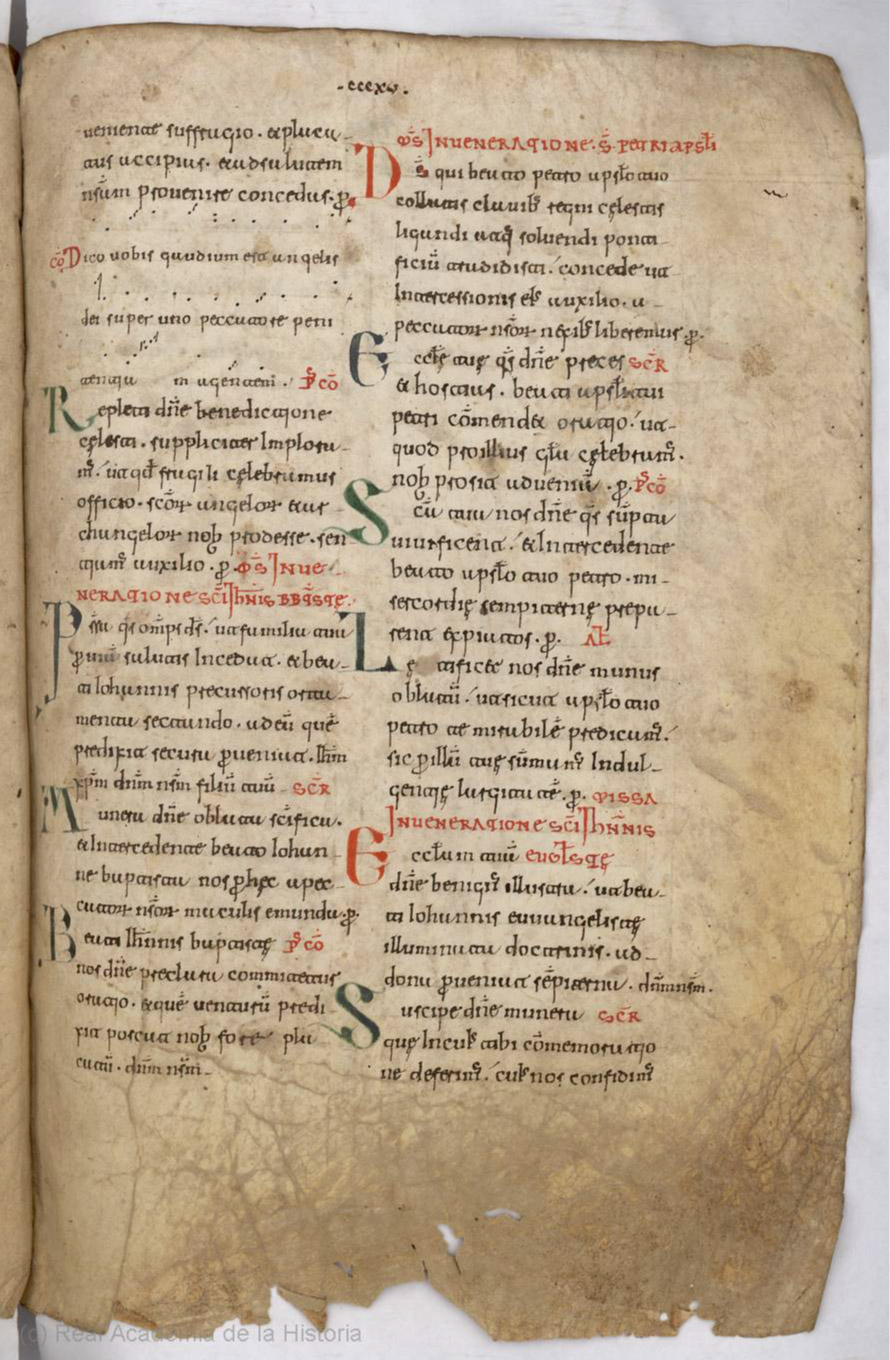 .cccxv.
veniente suffragio. & placa
tus accipias. & ad salutem
nr̄am provenire concedas. p̱.
cō Dico vobis gaudium est angelis
dei super uno peccatore peni
tentiam agentem. P̄ cō
Repleti dn̄e benedictione
cęlesti. suppliciter Implora
m̄. ut qd̄ fragili cęlebramus
officio. scōꝝ angeloꝝ & ar
changeloꝝ nob̄ prodesse. sen
tiam̄ auxilio. p̱. M̄S Inve
NERATIONE SC̄I Ih̄NIS BBTISTĘ.
Presta q̄s om̄ps d̄s. ut familia tua
p̱ viam salutis Incedat. & bea
ti Iohannis precursoris orta
menta sectando. ad eū quē
predixit secura p̱veniat. Ih̄m
xp̄m dn̄m nr̄m filiū tuū. SCR̄
Munera dn̄e oblata sc̄ifica.
& Intercedente beato Iohan
ne baptista nos p̱ hęc a pec
catoꝝ nr̄oꝝ maculis emunda. p̱.
Beati Ih̄nnis baptistę P̄ cō
nos dn̄e preclara commitetur
oratio. & quē venturū predi
xit poscat nob̄ fore pla
catū. dn̄m nr̄m
M̄S InVENERATIONE. S̄. PETRI APSTL̄I
D̄s qui beato petro apsl̄o tuo
collatis clavib; regni cęlestis
ligandi atq̄ solvendi ponti
ficiū tradidisti. concede ut
Intercessionis ei; auxilio. a
peccatoꝝ nr̄oꝝ nexib; liberemur. p̱.
Eccl̄ę tuę q̄s dn̄e preces SCR̄
& hostias. beati apsl̄i tui
petri cōmendet oratio. ut
quod pro illius gl̄a cęlebram̄.
nob̄ prosit ad veniā. p̱. P̄ cō
Sc̄a tua nos dn̄e q̄s sūpta
vivificent. & Intercedente
beato apsl̄o tuo petro. mi
sericordię sempiternę prepa
rent expiatos. p̱. AL̄
Lętificet nos dn̄e munus
oblatū. ut sicut apsl̄o tuo
petro te mirabilē predicam̄.
sic p̱ illū tuę sūmam̄ Indul
gentię largitatē. p̱. MISSA
InVENERATIONE SC̄I Ih̄NNIS
Eccl̄am tuā EVGL̄STĘ
dn̄e benign̄ illustra. ut bea
ti Iohannis evvangelistę
illuminata doctrinis. ad
dona p̱veniat sēpiterna. dn̄m nr̄m.
Suscipe dn̄e munera SCR̄
quę In eius tibi cōmemoratio
ne deferim̄. cuius nos confidim̄
(c) Real Academia de la Historia